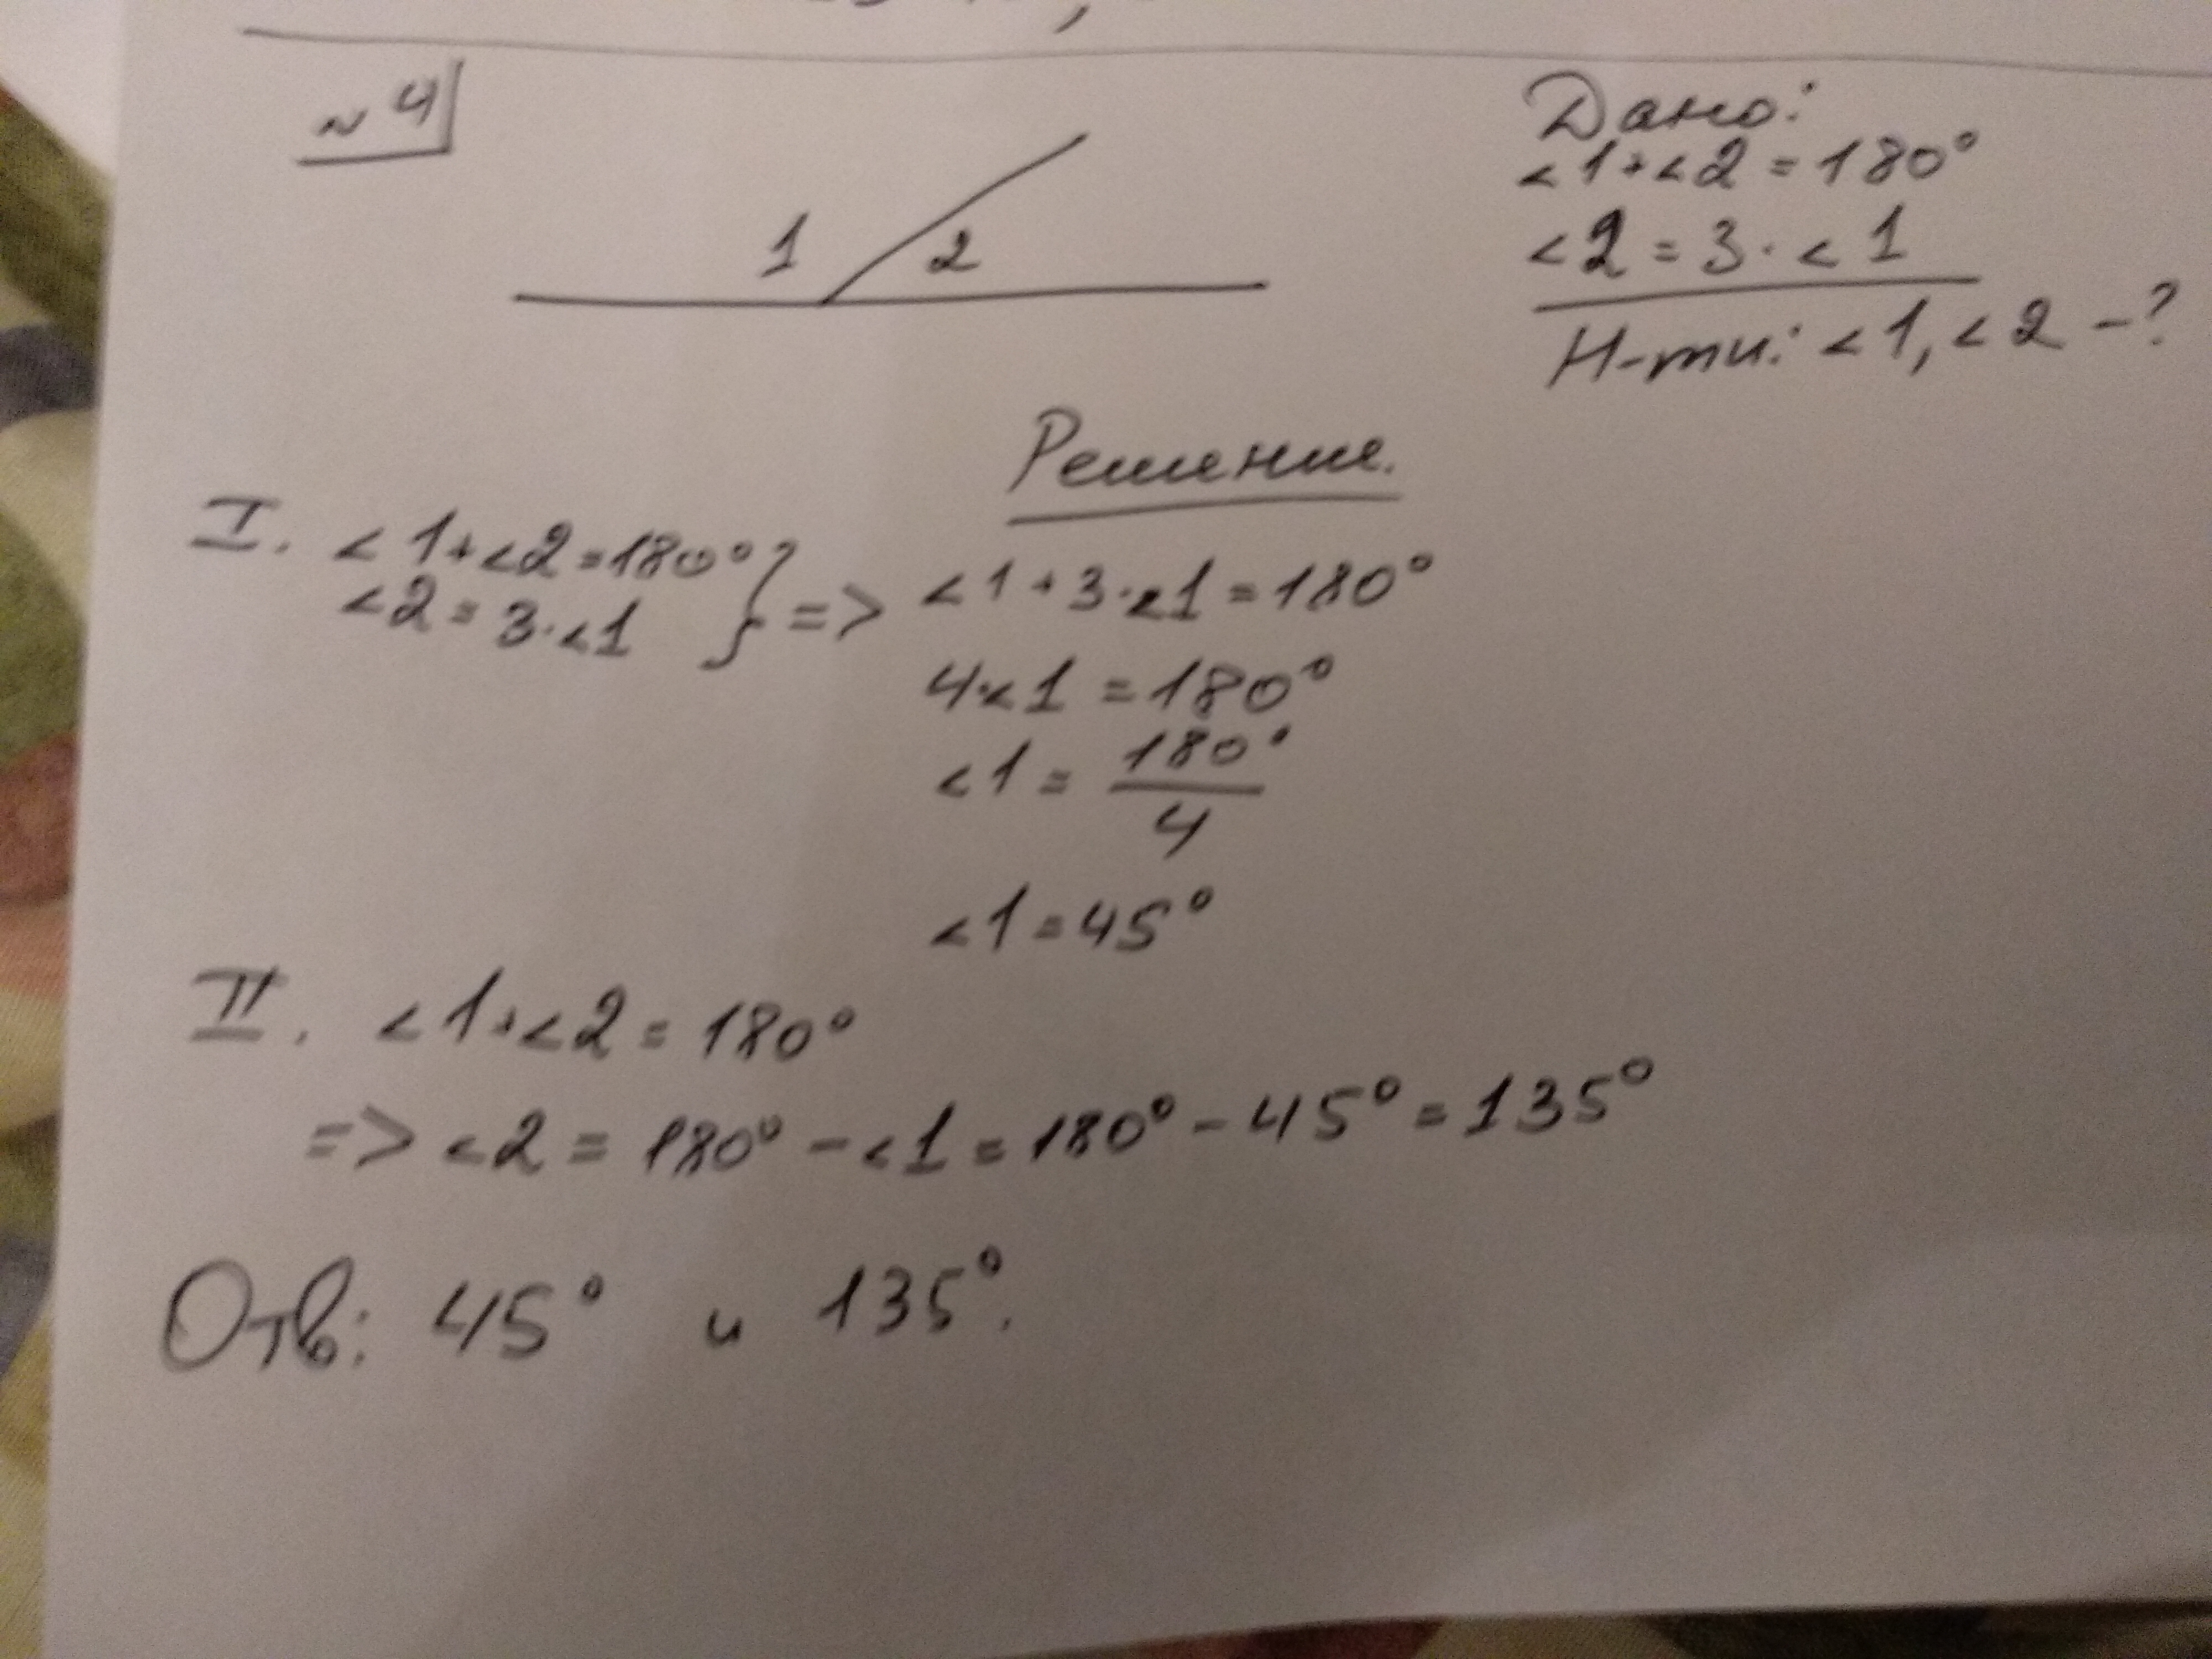 № 4
1 2
Дано:
<1+<2=180°
<2=3·<1
Н-ти: <1, <2 -?
Решение.
I. <1+<2=180°
<2=3·<1 } => <1+3·<1=180°
4·<1=180°
<1=180°/4
<1=45°
II. <1+<2=180°
=> <2=180°-<1=180°-45°=135°
Отв: 45° и 135°.